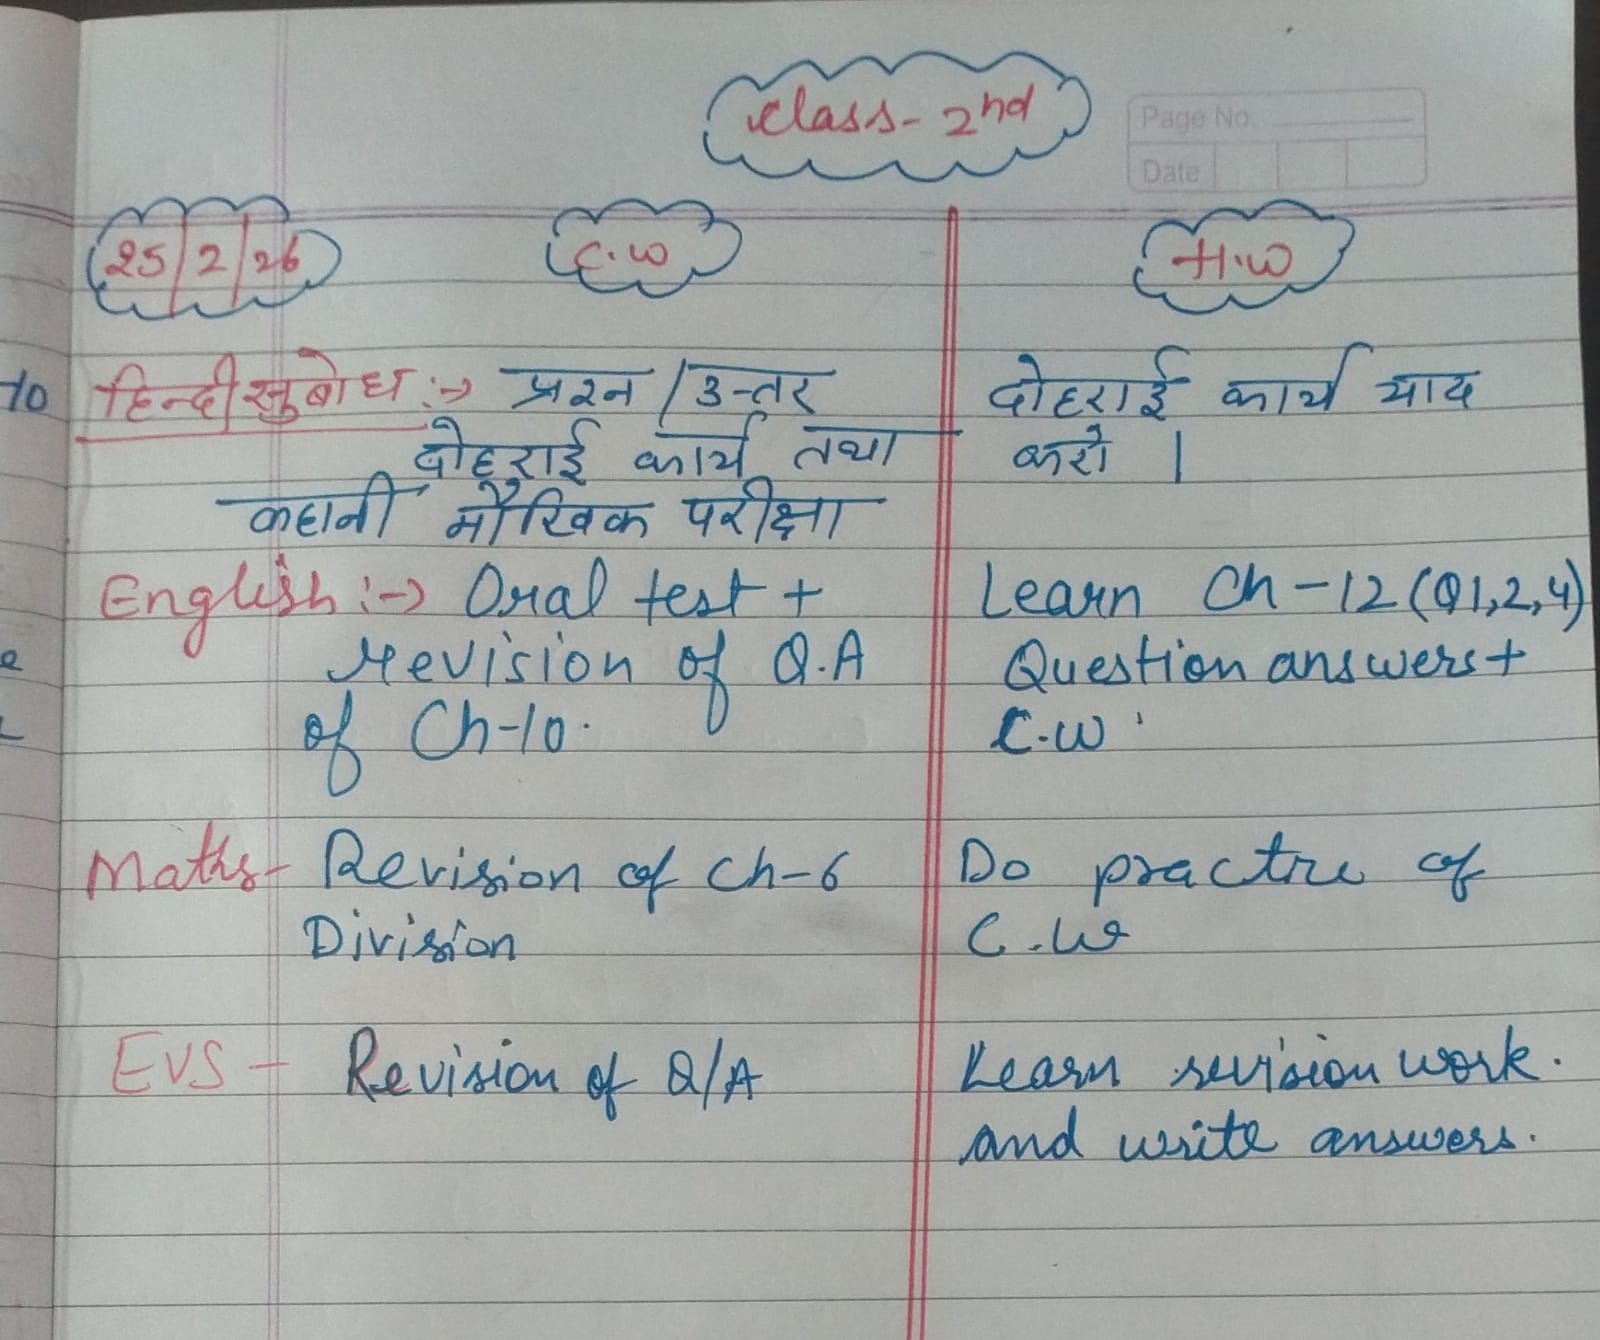 Class-2nd
Page No.
Date
25/2/26
C.W
H.W
10
हिन्दी सुबोध :→ प्रश्न /उत्तर
दोहराई कार्य याद
दोहराई कार्य तथा
करो |
कहानी मौखिक परीक्षा
English :→ Oral test +
Learn Ch-12 (Q1,2,4)
revision of Q.A
Question answers +
of Ch-10.
C.W.
Maths- Revision of Ch-6
Do practice of
Division
C.W
EVS - Revision of Q/A
Learn revision work.
and write answers.